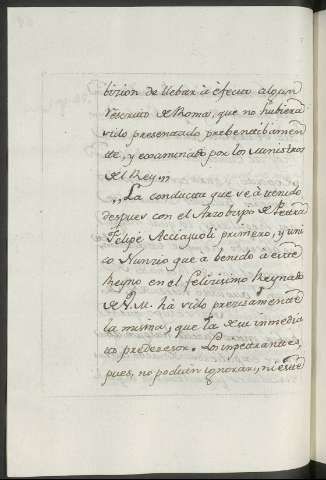 bizion de llebar à efecto algun
rescrito de Roma, que no hubiera
sido presentado prebentibamen
te, y examinado por los Ministros
del Rey,,
,,La conducta que se à tenido
despues con el Arzobispo de Petra
Felipe Acciajuoli primero, y uni
co Nunzio que à benido à este
Reyno en el felizisimo Reynado
de V.M. há sido precisamente
la misma, que la de su inmedia
to predezesor. Los impetrantes,
pues, no podian ignorar, ni este